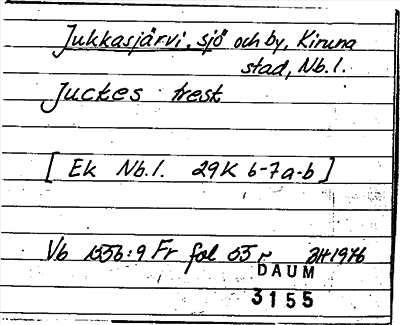 Jukkasjärvi, sjö och by, Kiruna
stad, Nb.l.
Juckes trest
[ Ek Nb.l. 29K 6-7a-b ]
Vb 1556:9 Fr fol 55 r BH 1976
DAUM
3155